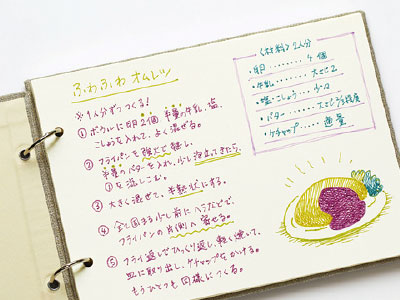 ふわふわオムレツ
※1人分ずつつくる!
① ボウルに卵2個、半量の牛乳、塩、
こしょうを入れて、よく混ぜる。
② フライパンを強火で熱し、
半量のバターを入れ、少し泡立ってきたら、
①を流しこむ。
③ 大きく混ぜて、半熟状にする。
④ 固まる少し前にヘラなどで、
フライパンの片側へ寄せる。
⑤ フライ返しでひっくり返し、軽く焼いて、
皿に取り出し、ケチャップをかける。
もうひとつも同様につくる。
〈材料〉2人分
・卵……… 4個
・牛乳……… 大さじ2
・塩・こしょう… 少々
・バター…… 大さじ
・ケチャップ…… 適量